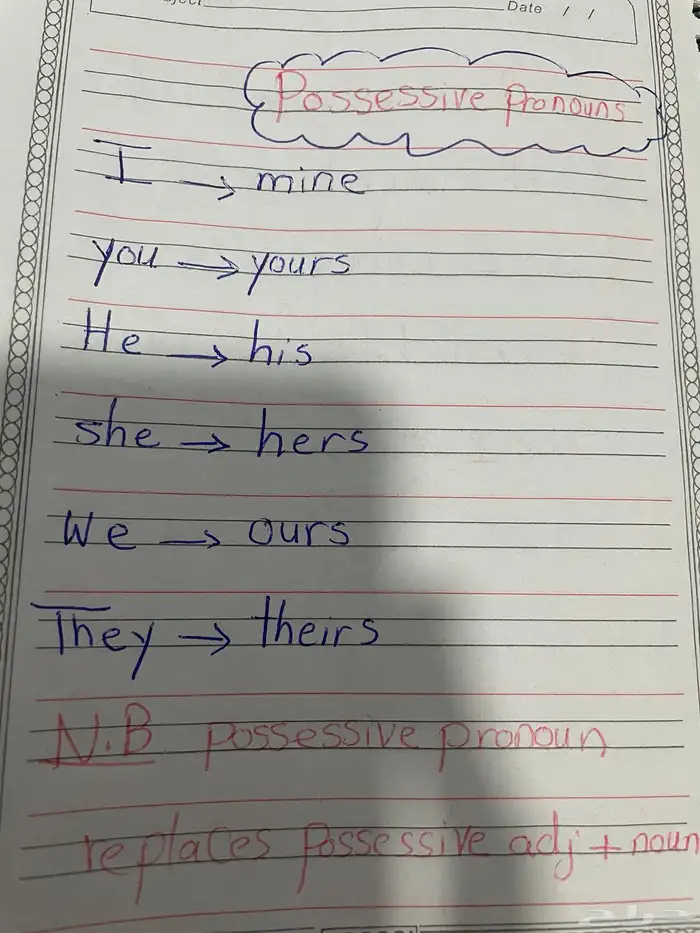 Date / /
Possessive pronouns
I → mine
you → yours
He → his
she → hers
We → ours
They → theirs
N.B possessive pronoun
replaces possessive adj + noun